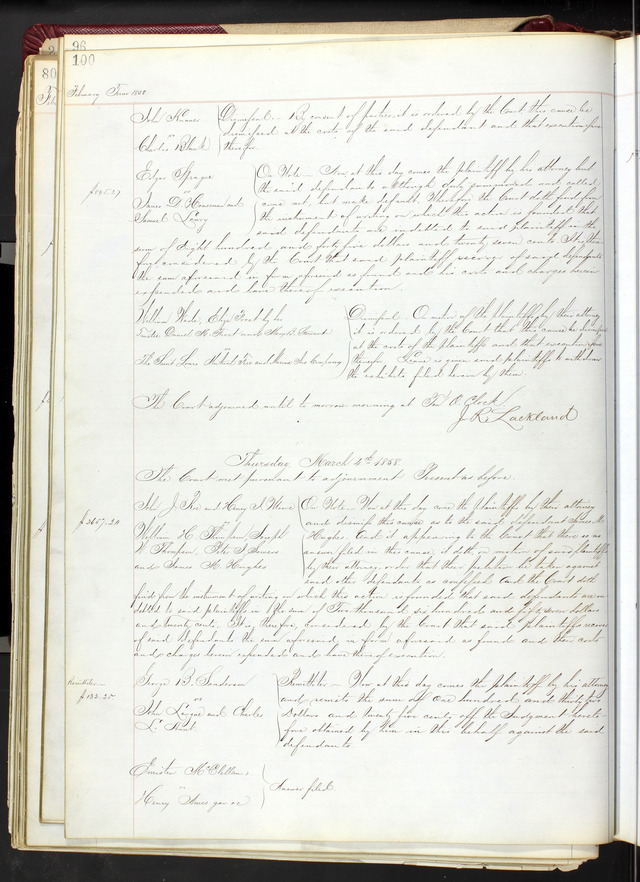 96
100
80
February Term 1858
John Keane
vs
Charles Blank
Dismissed. By consent of parties it is ordered by the Court this cause be
dismissed at the costs of the said defendant and that execution issue
therefor
$845.27
Edgar Sprague
vs
James D. and
Samuel
On Note. Now at this day comes the plaintiff by his attorney but
the said defendants although duly summoned and called
come not, but make default. Wherefore the Court doth find from
the instrument of writing on which this action is founded that
said defendants are indebted to said plaintiff in the
sum of Eight hundred and forty five dollars and twenty seven cents It is there
fore considered by the Court that said plaintiff recover of said defendants
the sum aforesaid in form aforesaid as found and his costs and charges herein
expended and have thereof execution.
William by his
Trustee Daniel and
vs
The Saint Louis Mutual Fire and Marine Ins Company
Dismissed. On motion of the plaintiffs by their attorney
it is ordered by the Court that this cause be dismissed
at the costs of the plaintiffs and that execution issue
therefor. Leave is given said plaintiffs to withdraw
the exhibits filed herein by them.
The Court adjourned until to morrow morning at Ten O. Clock
J. R. Lackland
Thursday March 4th 1858.
The Court met pursuant to adjournment Present as before.
$2657.20
John J. and Henry
vs
William H. Thompson,
W Thompson, Peter
and James M Hughes
On Note. Now at this day come the plaintiffs by their attorney
and dismiss this cause as to the said defendant James M.
Hughes. And it appearing to the Court that there is no
answer filed in this cause, it doth on motion of said plaintiffs
by their attorney order that the petition be taken against
said other defendants as confessed. And the Court doth
find from the instrument of writing on which this action is founded, that said defendants are in
debted to said plaintiffs in the sum of Two thousand six hundred and fifty seven dollars
and twenty cents. It is therefore considered by the Court that said plaintiffs recover
of said defendants the sum aforesaid in form aforesaid as found and their costs
and charges herein expended and have thereof execution.
Remittitur
$132.25
George B. Sanderson
vs
John and Charles
L.
Remittitur. Now at this day comes the plaintiff by his attorney
and remits the sum of one hundred and thirty
Dollars and twenty five cents off the Judgment hereto-
fore obtained by him in this behalf against the said
defendants
McClellan
vs
Henry Ames
Answer filed